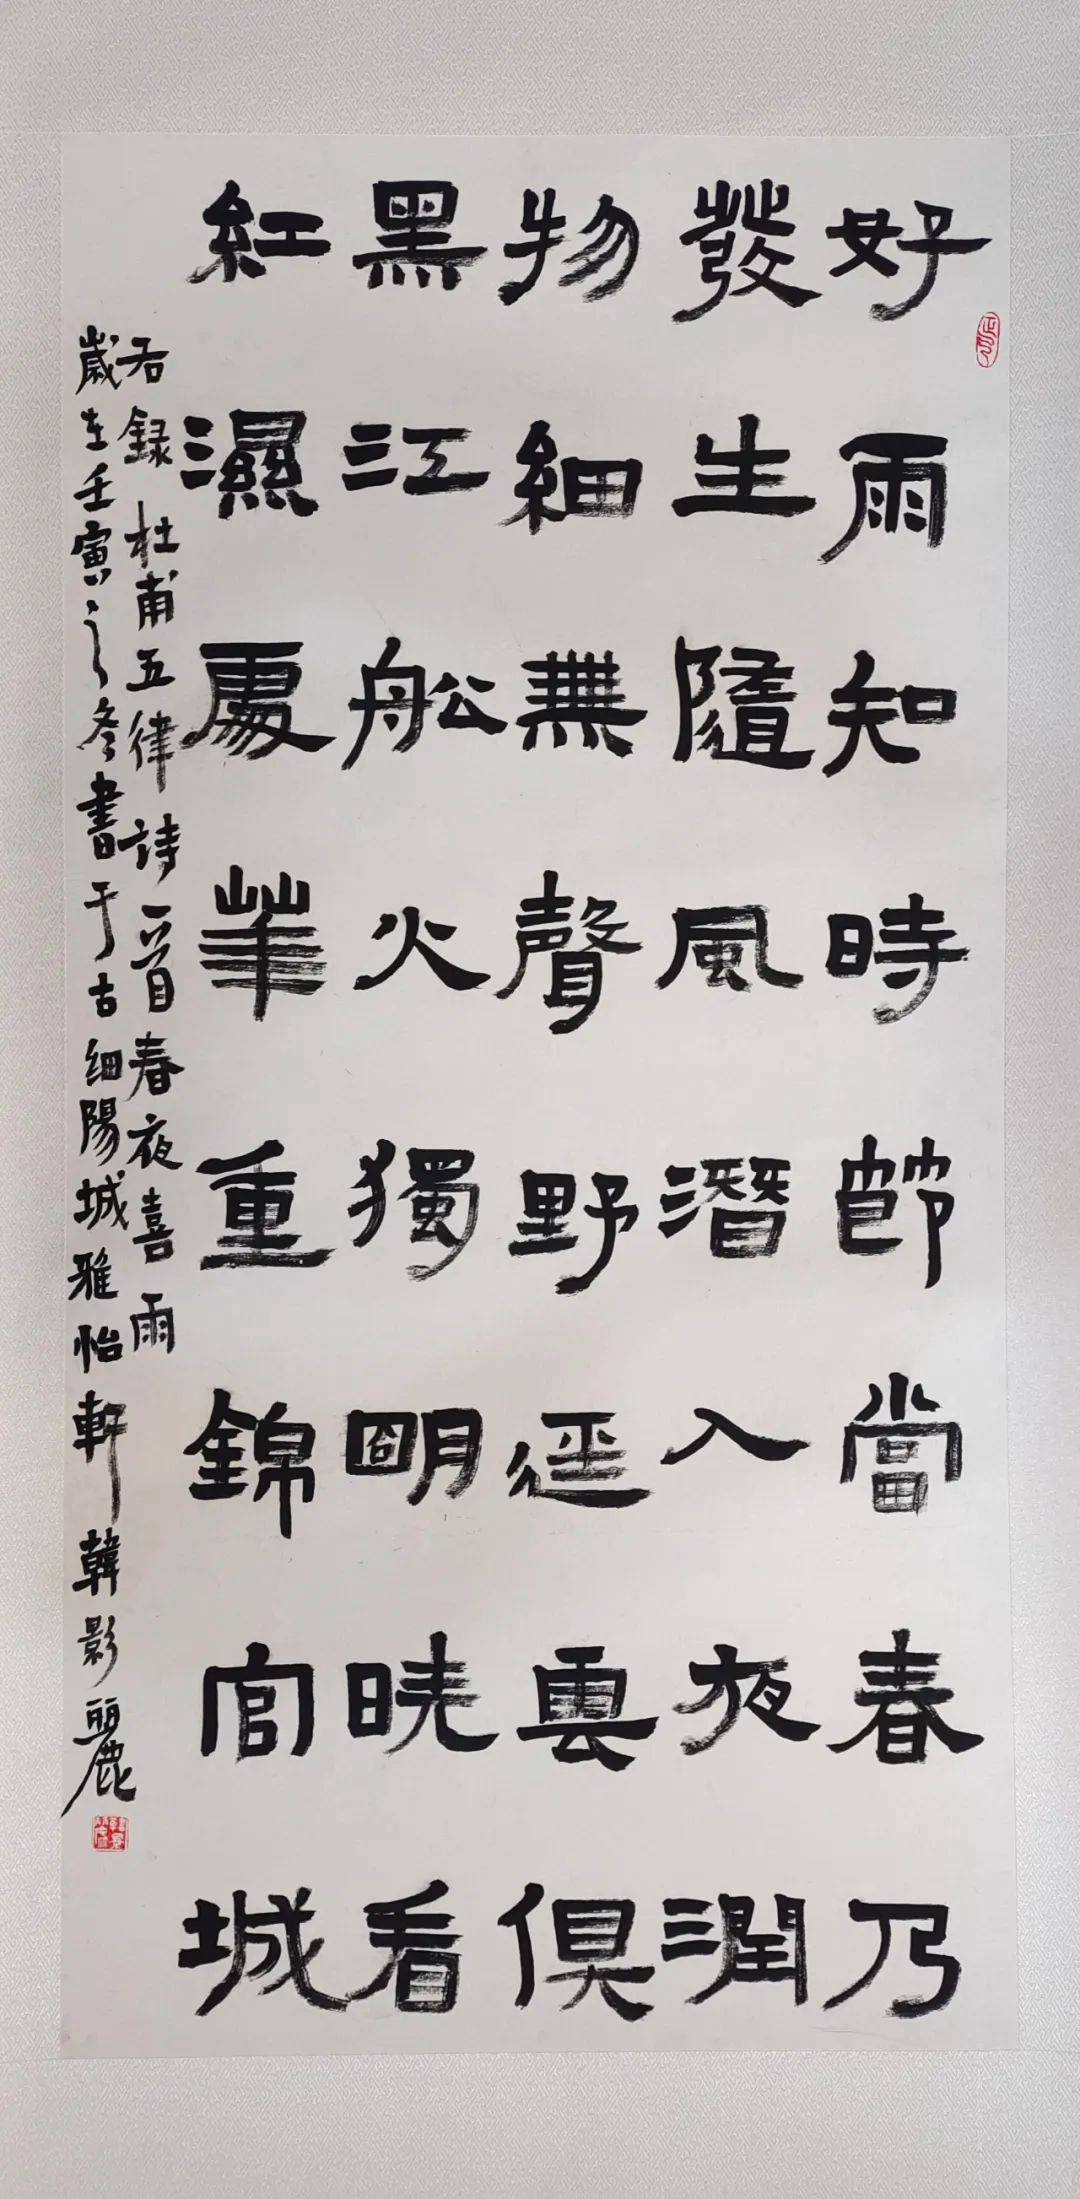 好雨知時節當春乃
發生隨風潛入夜潤
物細無聲野徑雲俱
黑江船火獨明曉看
紅濕處華重錦官城
右録杜甫五律詩一首春夜喜雨
歲在壬寅之冬書于古细陽城雅怡軒韓影麗